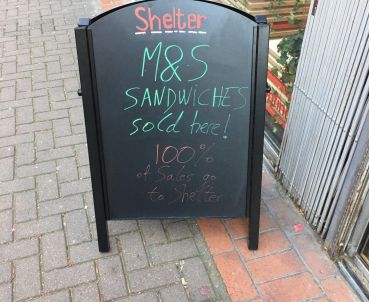 Shelter
M&S
SANDWICHES
sold here!
100%
of Sales go
to Shelter